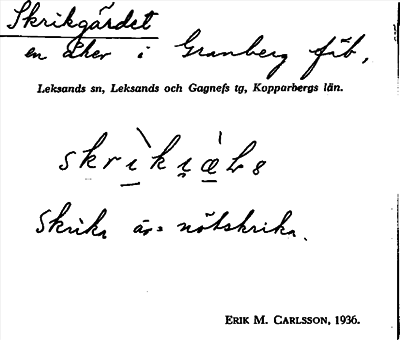 Skrikgärdet
en åker i Granberg fäb.
Leksands sn, Leksands och Gagnefs tg, Kopparbergs län.
Skrika är = nötskrika.
ERIK M. CARLSSON, 1936.